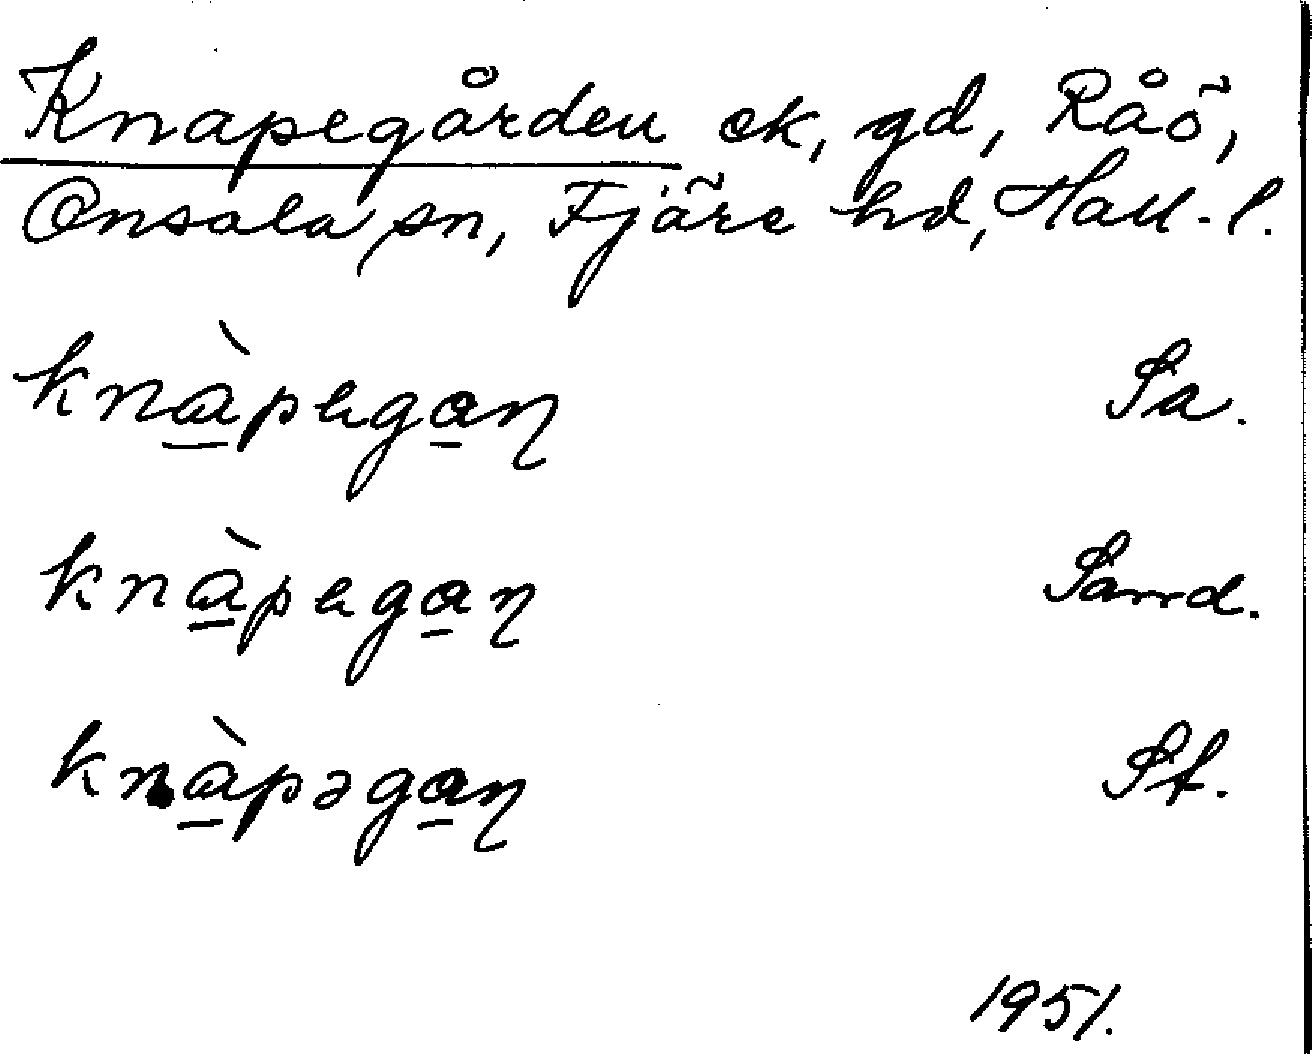 Knapegården ek, gd, Råö,
Onsala sn, Fjäre hd, Hall. l.
knàpegaɳ Sa.
knàpegaɳ Sand.
knàpəgaɳ St.
1951.